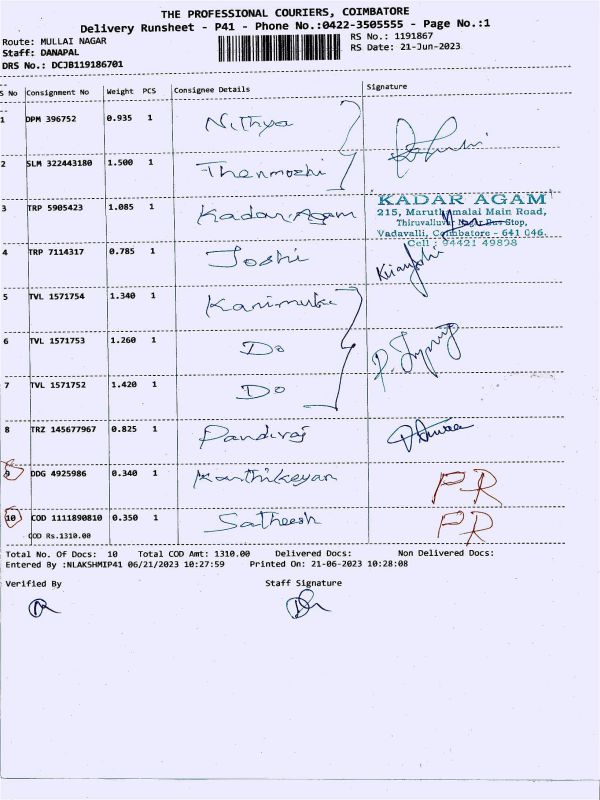 THE PROFESSIONAL COURIERS, COIMBATORE
Delivery Runsheet - P41 - Phone No.:0422-3505555 - Page No.:1
Route: MULLAI NAGAR RS No.: 1191867
Staff: DANAPAL RS Date: 21-Jun-2023
DRS No.: DCJB119186701
S No Consignment No Weight PCS Consignee Details Signature
1 DPM 396752 0.935 1 Nithya
2 SLM 322443180 1.500 1 Thenmozhi
3 TRP 5905423 1.085 1 Kadar Agam
KADAR AGAM
215, Maruthamalai Main Road,
Thiruvalluvar Nagar Bus Stop,
Vadavalli, Coimbatore - 641 046.
Cell : 94421 49808
4 TRP 7114317 0.785 1 Joshi
5 TVL 1571754 1.340 1
6 TVL 1571753 1.260 1 Do
7 TVL 1571752 1.420 1 Do
8 TRZ 145677967 0.825 1 Pandiraj
9 DDG 4925986 0.340 1 Karthikeyan PR
10 COD 1111890810 0.350 1 Satheesh PR
COD Rs.1310.00
Total No. Of Docs: 10 Total COD Amt: 1310.00 Delivered Docs: Non Delivered Docs:
Entered By :NLAKSHMIP41 06/21/2023 10:27:59 Printed On: 21-06-2023 10:28:08
Verified By Staff Signature